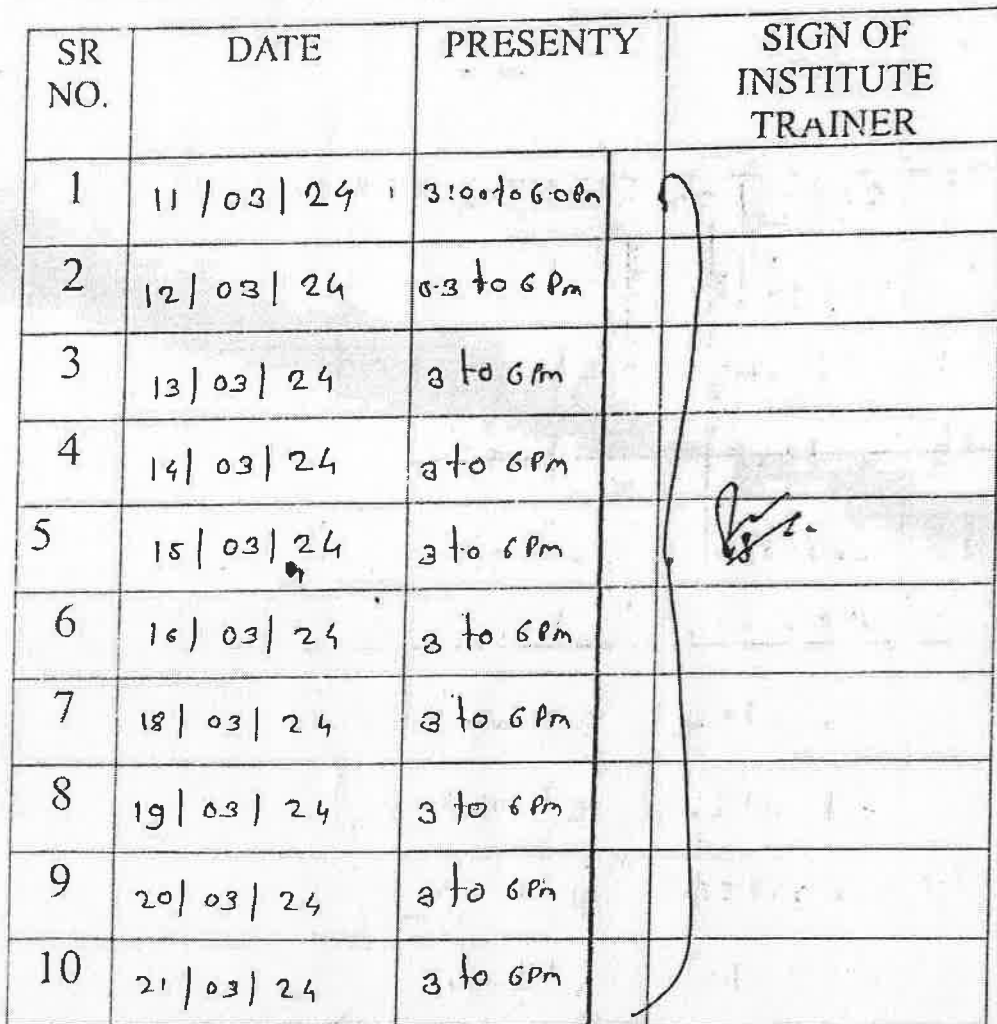 SR NO. DATE PRESENTY SIGN OF INSTITUTE TRAINER
1 11/03/24 3:00 to 6.0Pm
2 12/03/24 3 to 6 Pm
3 13/03/24 3 to 6 Pm
4 14/03/24 3 to 6 Pm
5 15/03/24 3 to 6 Pm
6 16/03/24 3 to 6 Pm
7 18/03/24 3 to 6 Pm
8 19/03/24 3 to 6 Pm
9 20/03/24 3 to 6 Pm
10 21/03/24 3 to 6 Pm